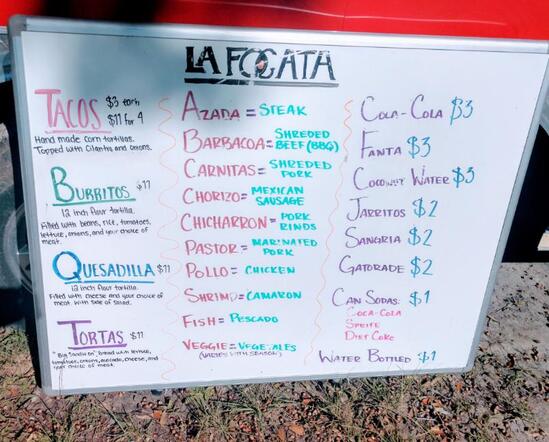 LA FOGATA
TACOS $3 each
$11 for 4
Hand made corn tortillas.
Topped with Cilantro and onions.
BURRITOS $11
12 inch flour tortilla.
Filled with beans, rice, tomatoes,
lettuce, onions, and your choice of
meat.
QUESADILLA $11
12 inch flour tortilla.
Filled with cheese and your choice of
meat. With side of salad.
TORTAS $11
bread with lettuce,
tomatoes, onions, avocado, cheese, and
your choice of meat.
AZADA = STEAK
BARBACOA = SHREDED
BEEF (BBQ)
CARNITAS = SHREDED
PORK
CHORIZO = MEXICAN
SAUSAGE
CHICHARRON = PORK
RINDS
PASTOR = MARINATED
PORK
POLLO = CHICKEN
SHRIMP = CAMARON
FISH = PESCADO
VEGGIE = VEGETALES
(VARIES WITH SEASON)
COLA-COLA $3
FANTA $3
COCONUT WATER $3
JARRITOS $2
SANGRIA $2
GATORADE $2
CAN SODAS: $1
COCA-COLA
SPRITE
DIET COKE
WATER BOTTLED $1